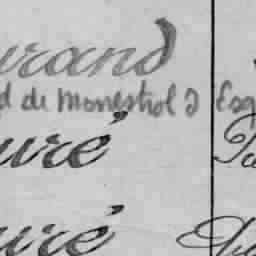 urand
d de Monestrol d Esq
uré
uré